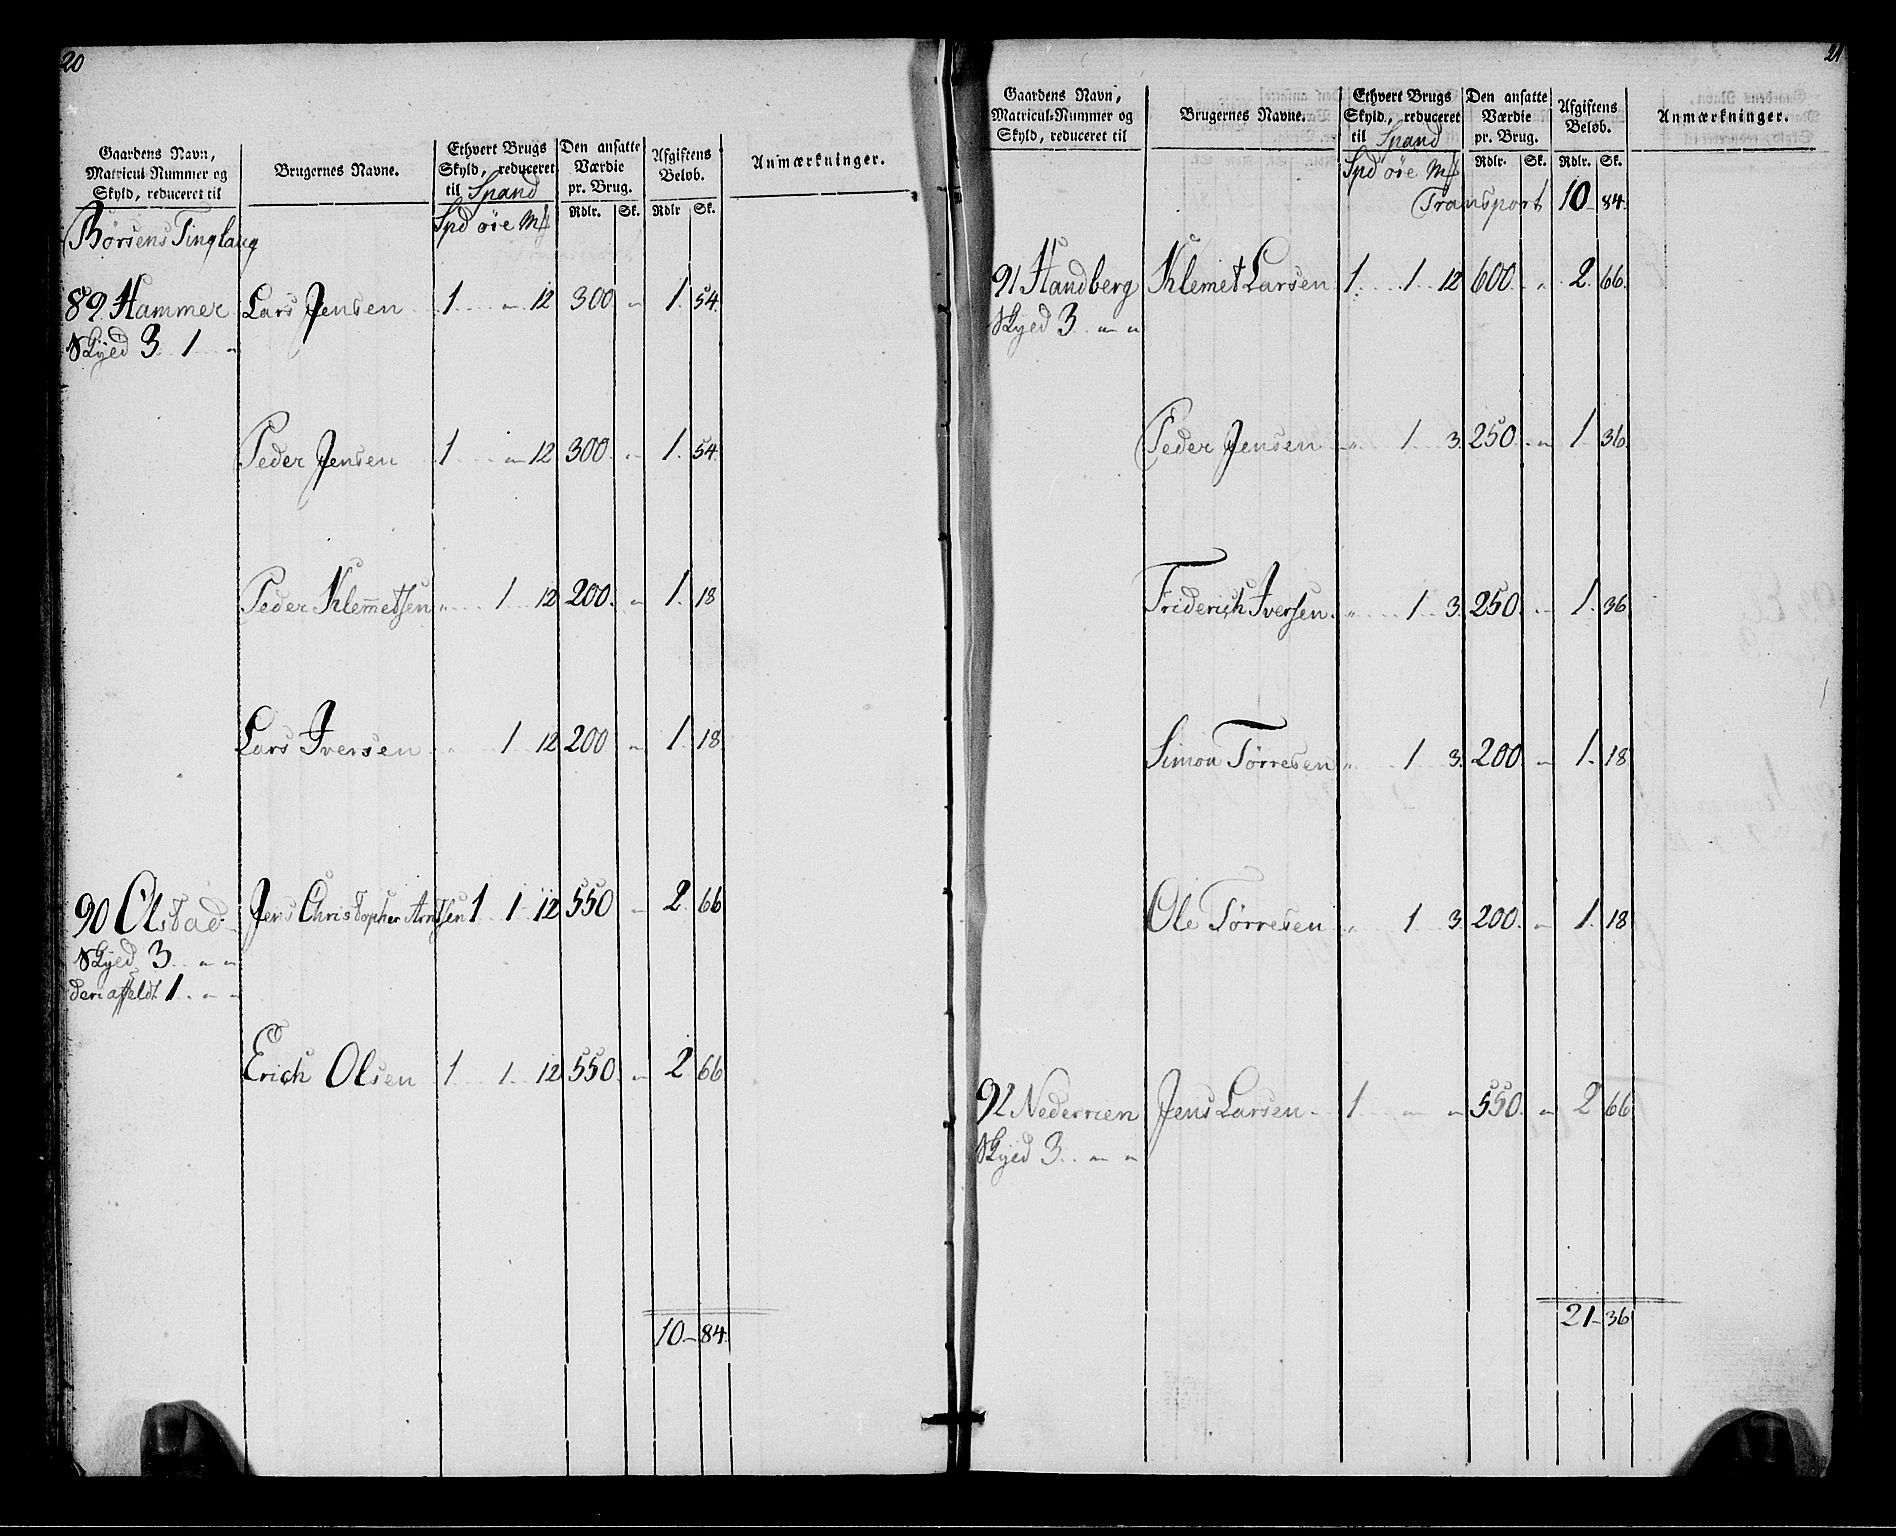 20
Gaardens Navn, Matricul-Nummer og Skyld, reduceret til | Brugernes Navne. | Ethvert Brugs Skyld, reduceret til Spand | Den ansatte Værdie pr. Brug. | Afgiftens Beløb. | Anmærkninger.
Spd øre Mkl | Rdlr. | Sk. | Rdlr | Sk.
Børsens Tinglaug
89 Hammer | Lars Jensen | 1 " 12 | 300 " | 1. 54.
Skyld 3 1 "
Peder Jensen | 1 " 12 | 300 " | 1. 54.
Peder Klemetsen | " 1 12 | 200 " | 1. 18
Lars Iversen | " 1 12 | 200 " | 1. 18
90 Ølstad | Jens Christopher Arntsen | 1 1 12 | 550 " | 2 66
Skyld 3 " "
1 " "
Erich Olsen | 1 1 12 | 550 " | 2 66
10 84.
21
Gaardens Navn, Matricul-Nummer og Skyld, reduceret til | Brugernes Navne. | Ethvert Brugs Skyld, reduceret til Spand | Den ansatte Værdie pr. Brug. | Afgiftens Beløb. | Anmærkninger.
Spd øre Mkl | Rdlr. | Sk. | Rdlr. | Sk.
Transport | 10 84.
91 Handberg | Klemet Larsen | 1. 1 12 | 600 " | 2. 66.
Skyld 3 " "
Peder Jensen | " 1 3. | 250 " | 1. 36
Friderich Iversen | " 1 3. | 250 " | 1. 36
Simon Tørresen | " 1 3. | 200 " | 1. 18
Ole Tørresen | " 1 3. | 200 " | 1. 18
92 Nederrien | Jens Larsen | 1 " " | 550 " | 2 66
Skyld 3 " "
21 36